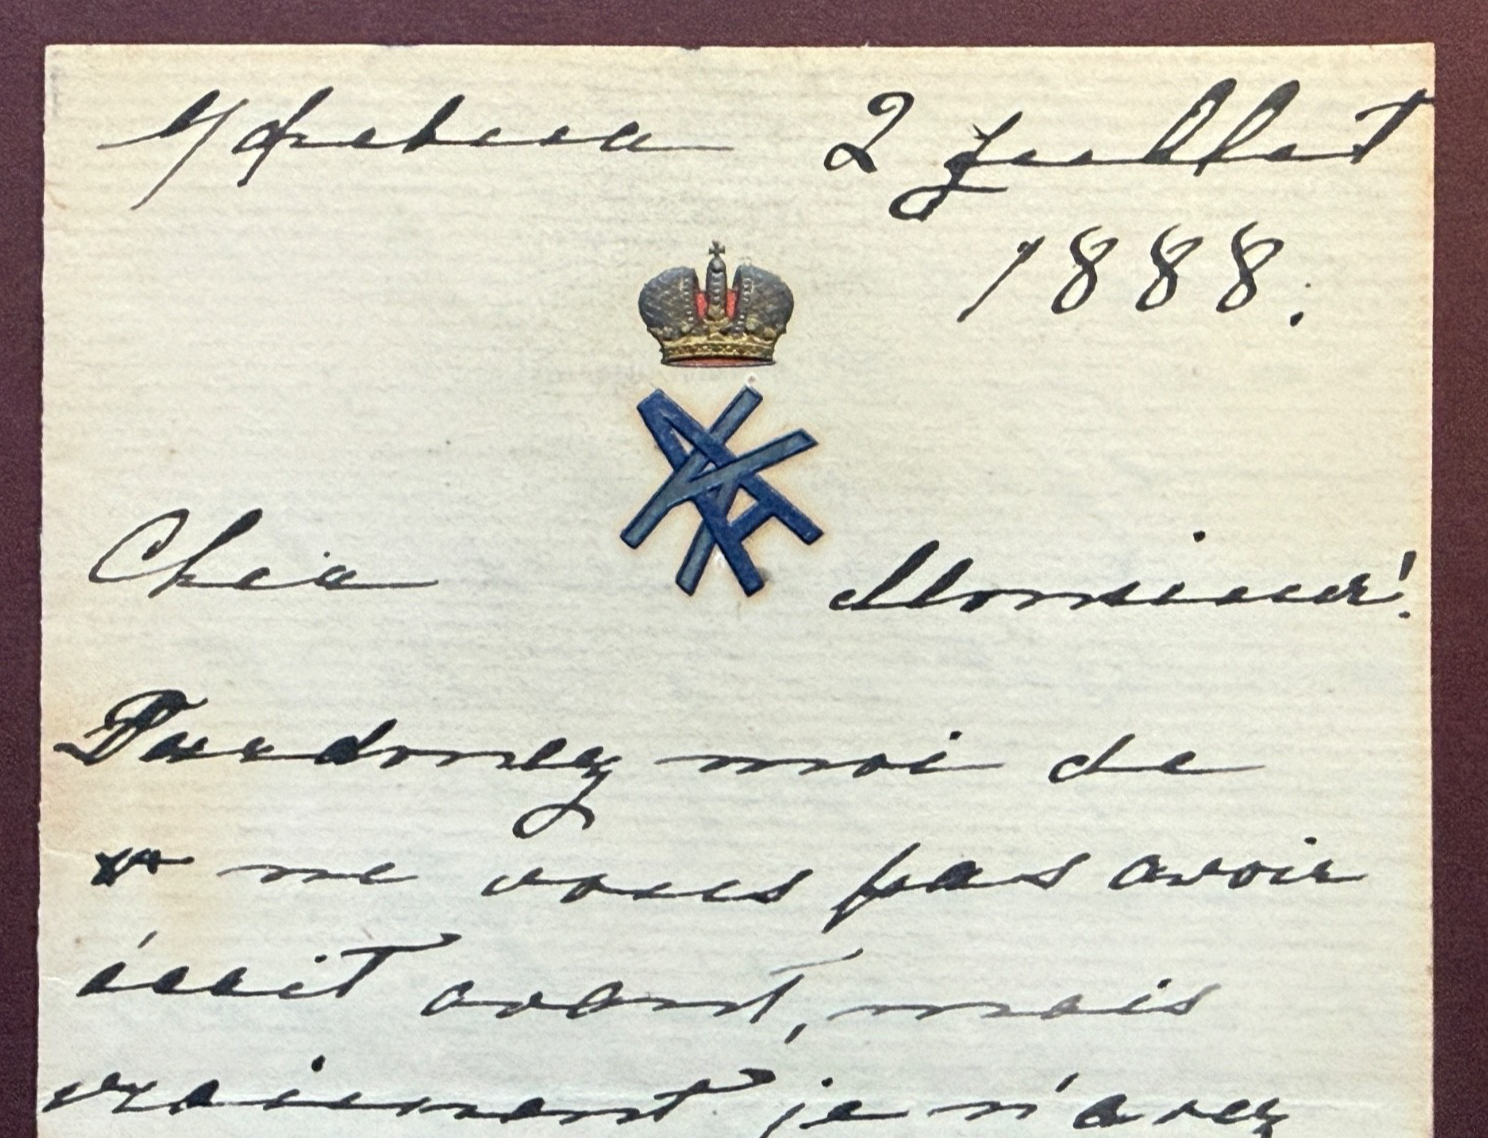 2 Juillet
1888.
Cher Monsieur!
Pardonez moi de
ne vous pas avoir
écrit avant, mais
vraiment je n'avez